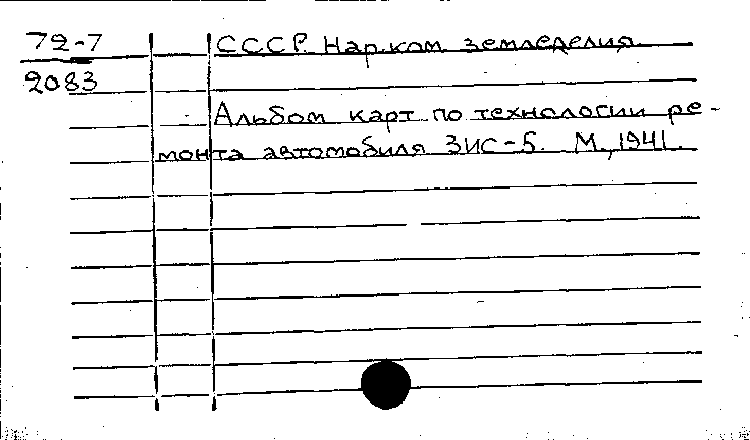 72-7
2083
СССР. Нар.ком земледелия
Альбом карт по технологии ре-
монта автомобиля ЗИС-5. М., 1941.